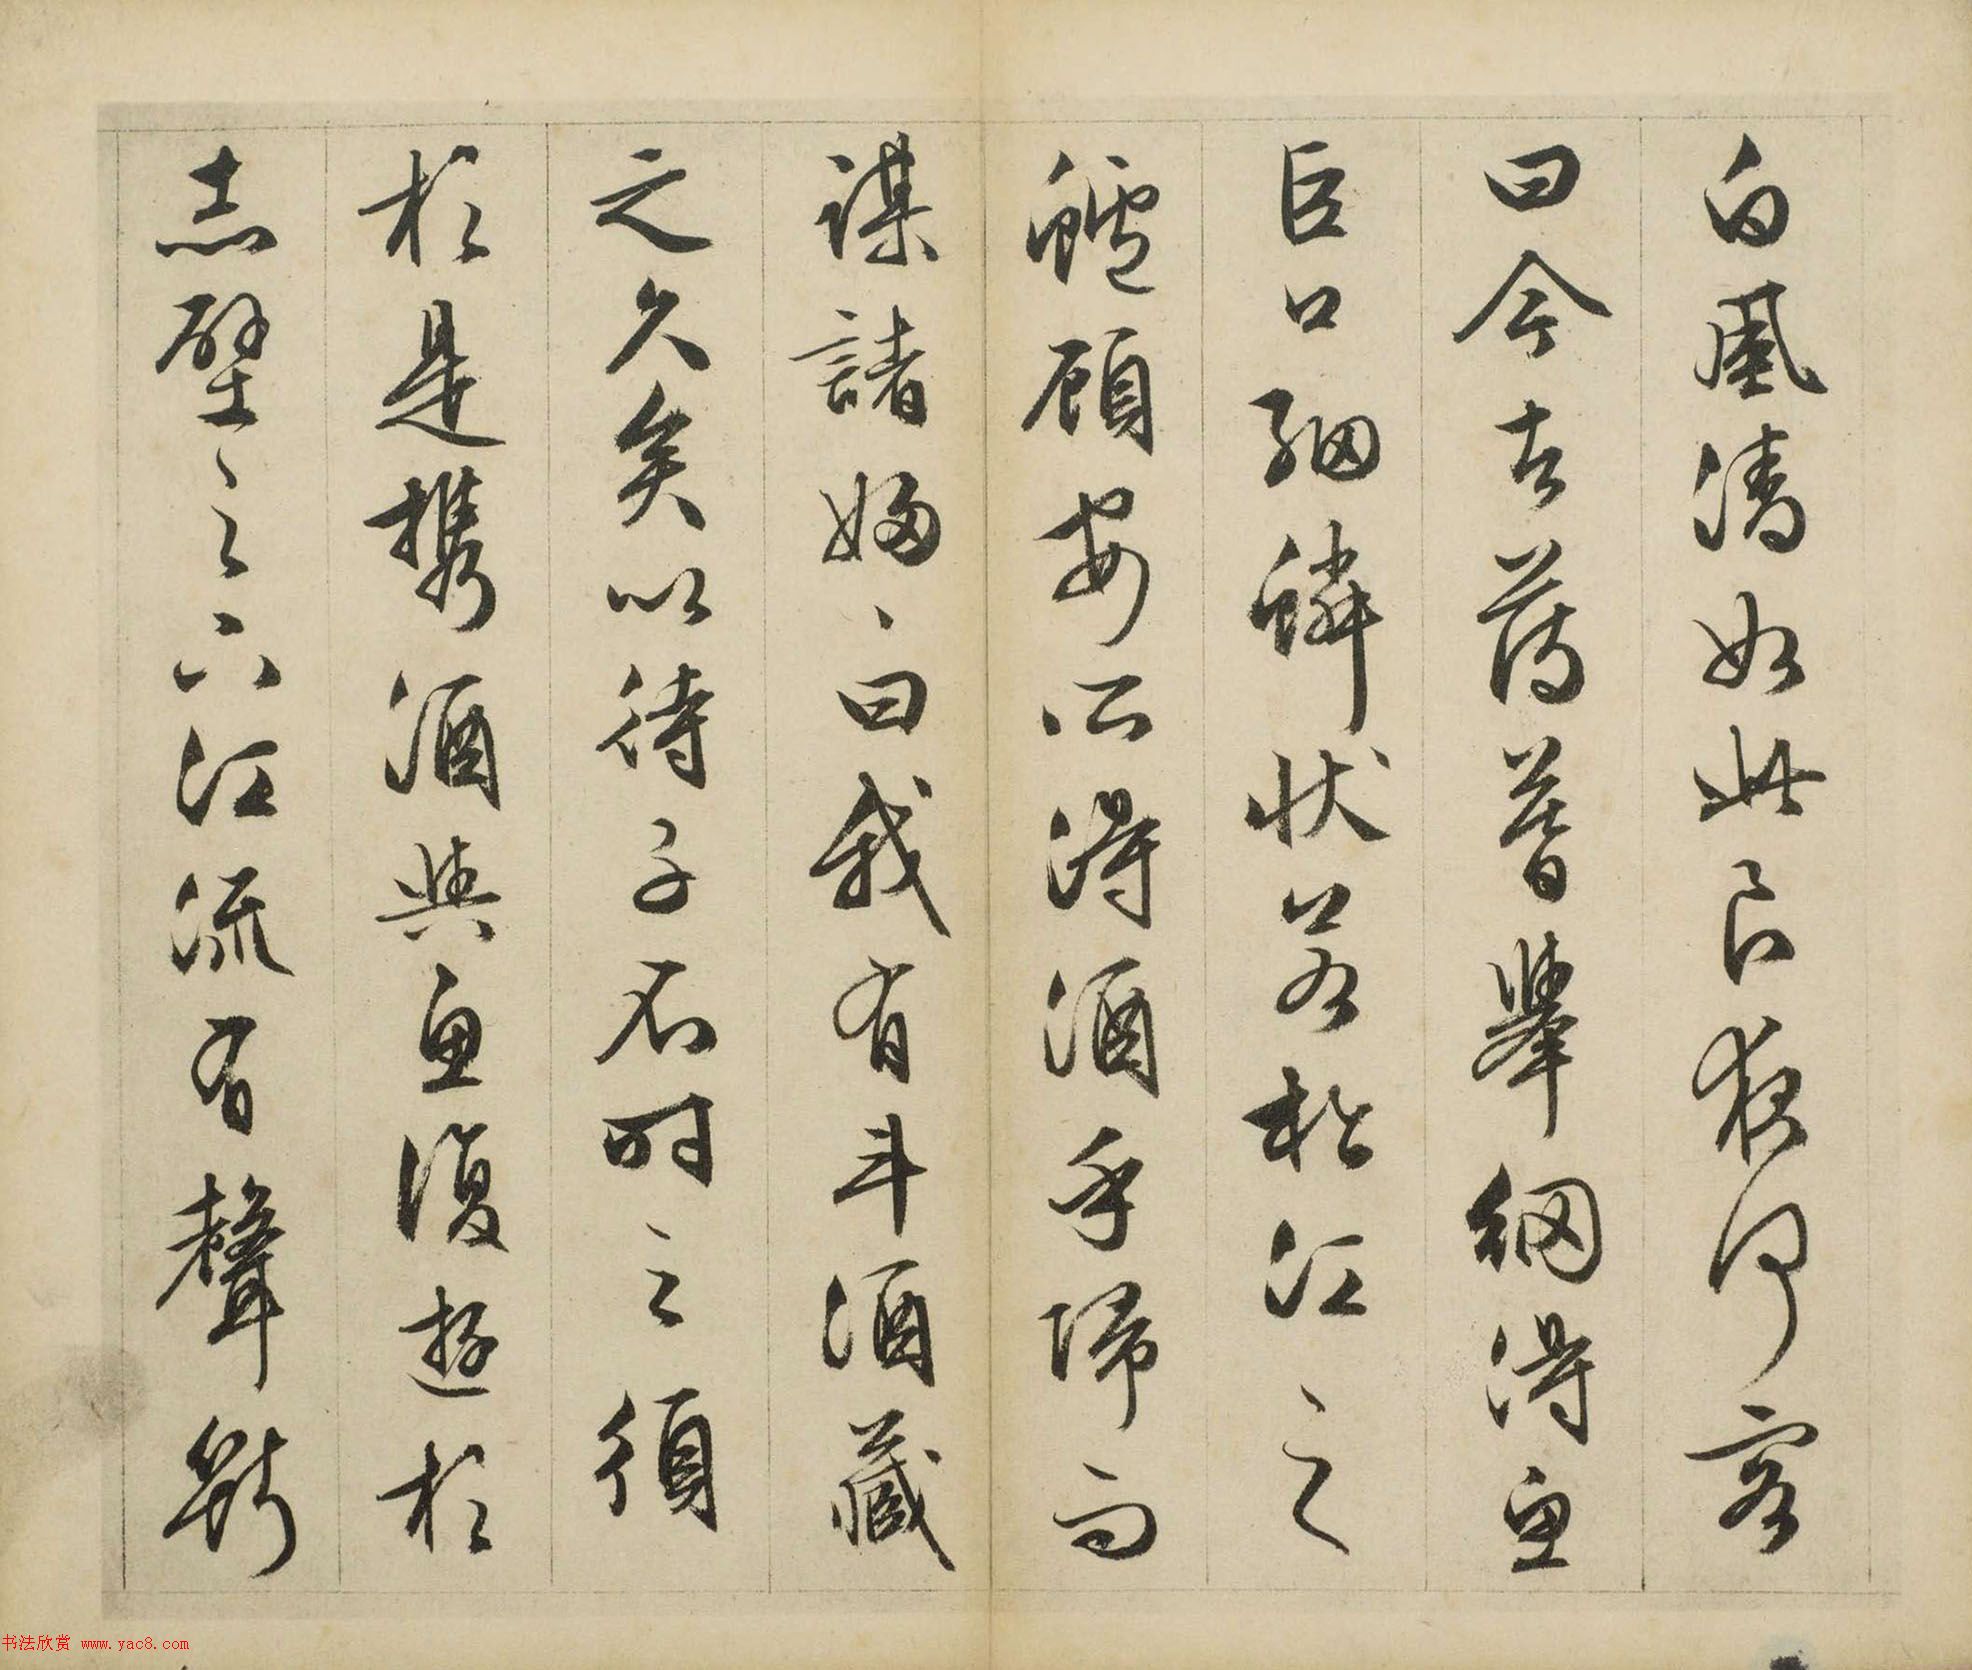 白風清如此良夜何客
曰今者薄暮舉網得魚
巨口細鱗狀若松江之
鱸顧安所得酒乎歸而
謀諸婦々曰我有斗酒藏
之久矣以待子不時之須
於是攜酒與魚復遊於
赤壁之下江流有聲斷
书法欣赏 www.yac8.com